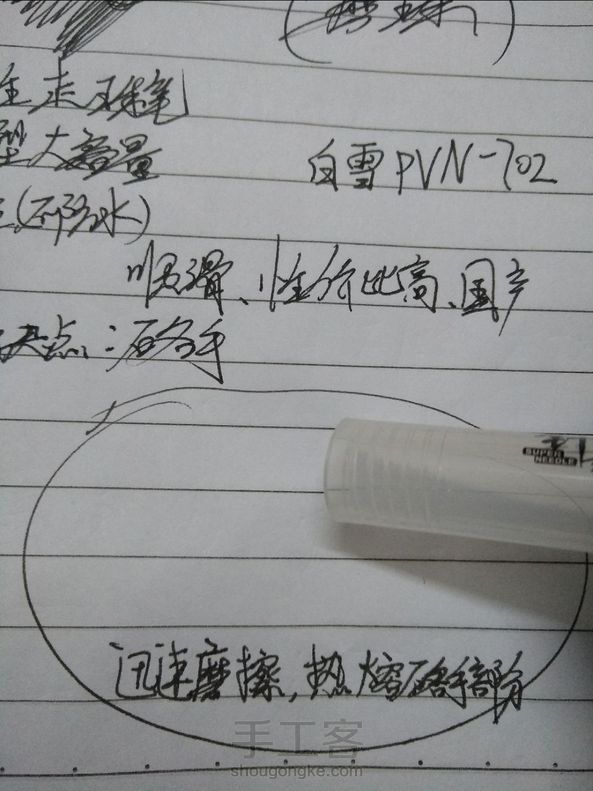 直走珠笔
型大容量
白雪PVN-702
(不防水)
顺滑、性价比高、国产
缺点:硌手
SUPER
NEEDLE
迅速磨擦,热熔硌手部分
手工客
shougongke.com